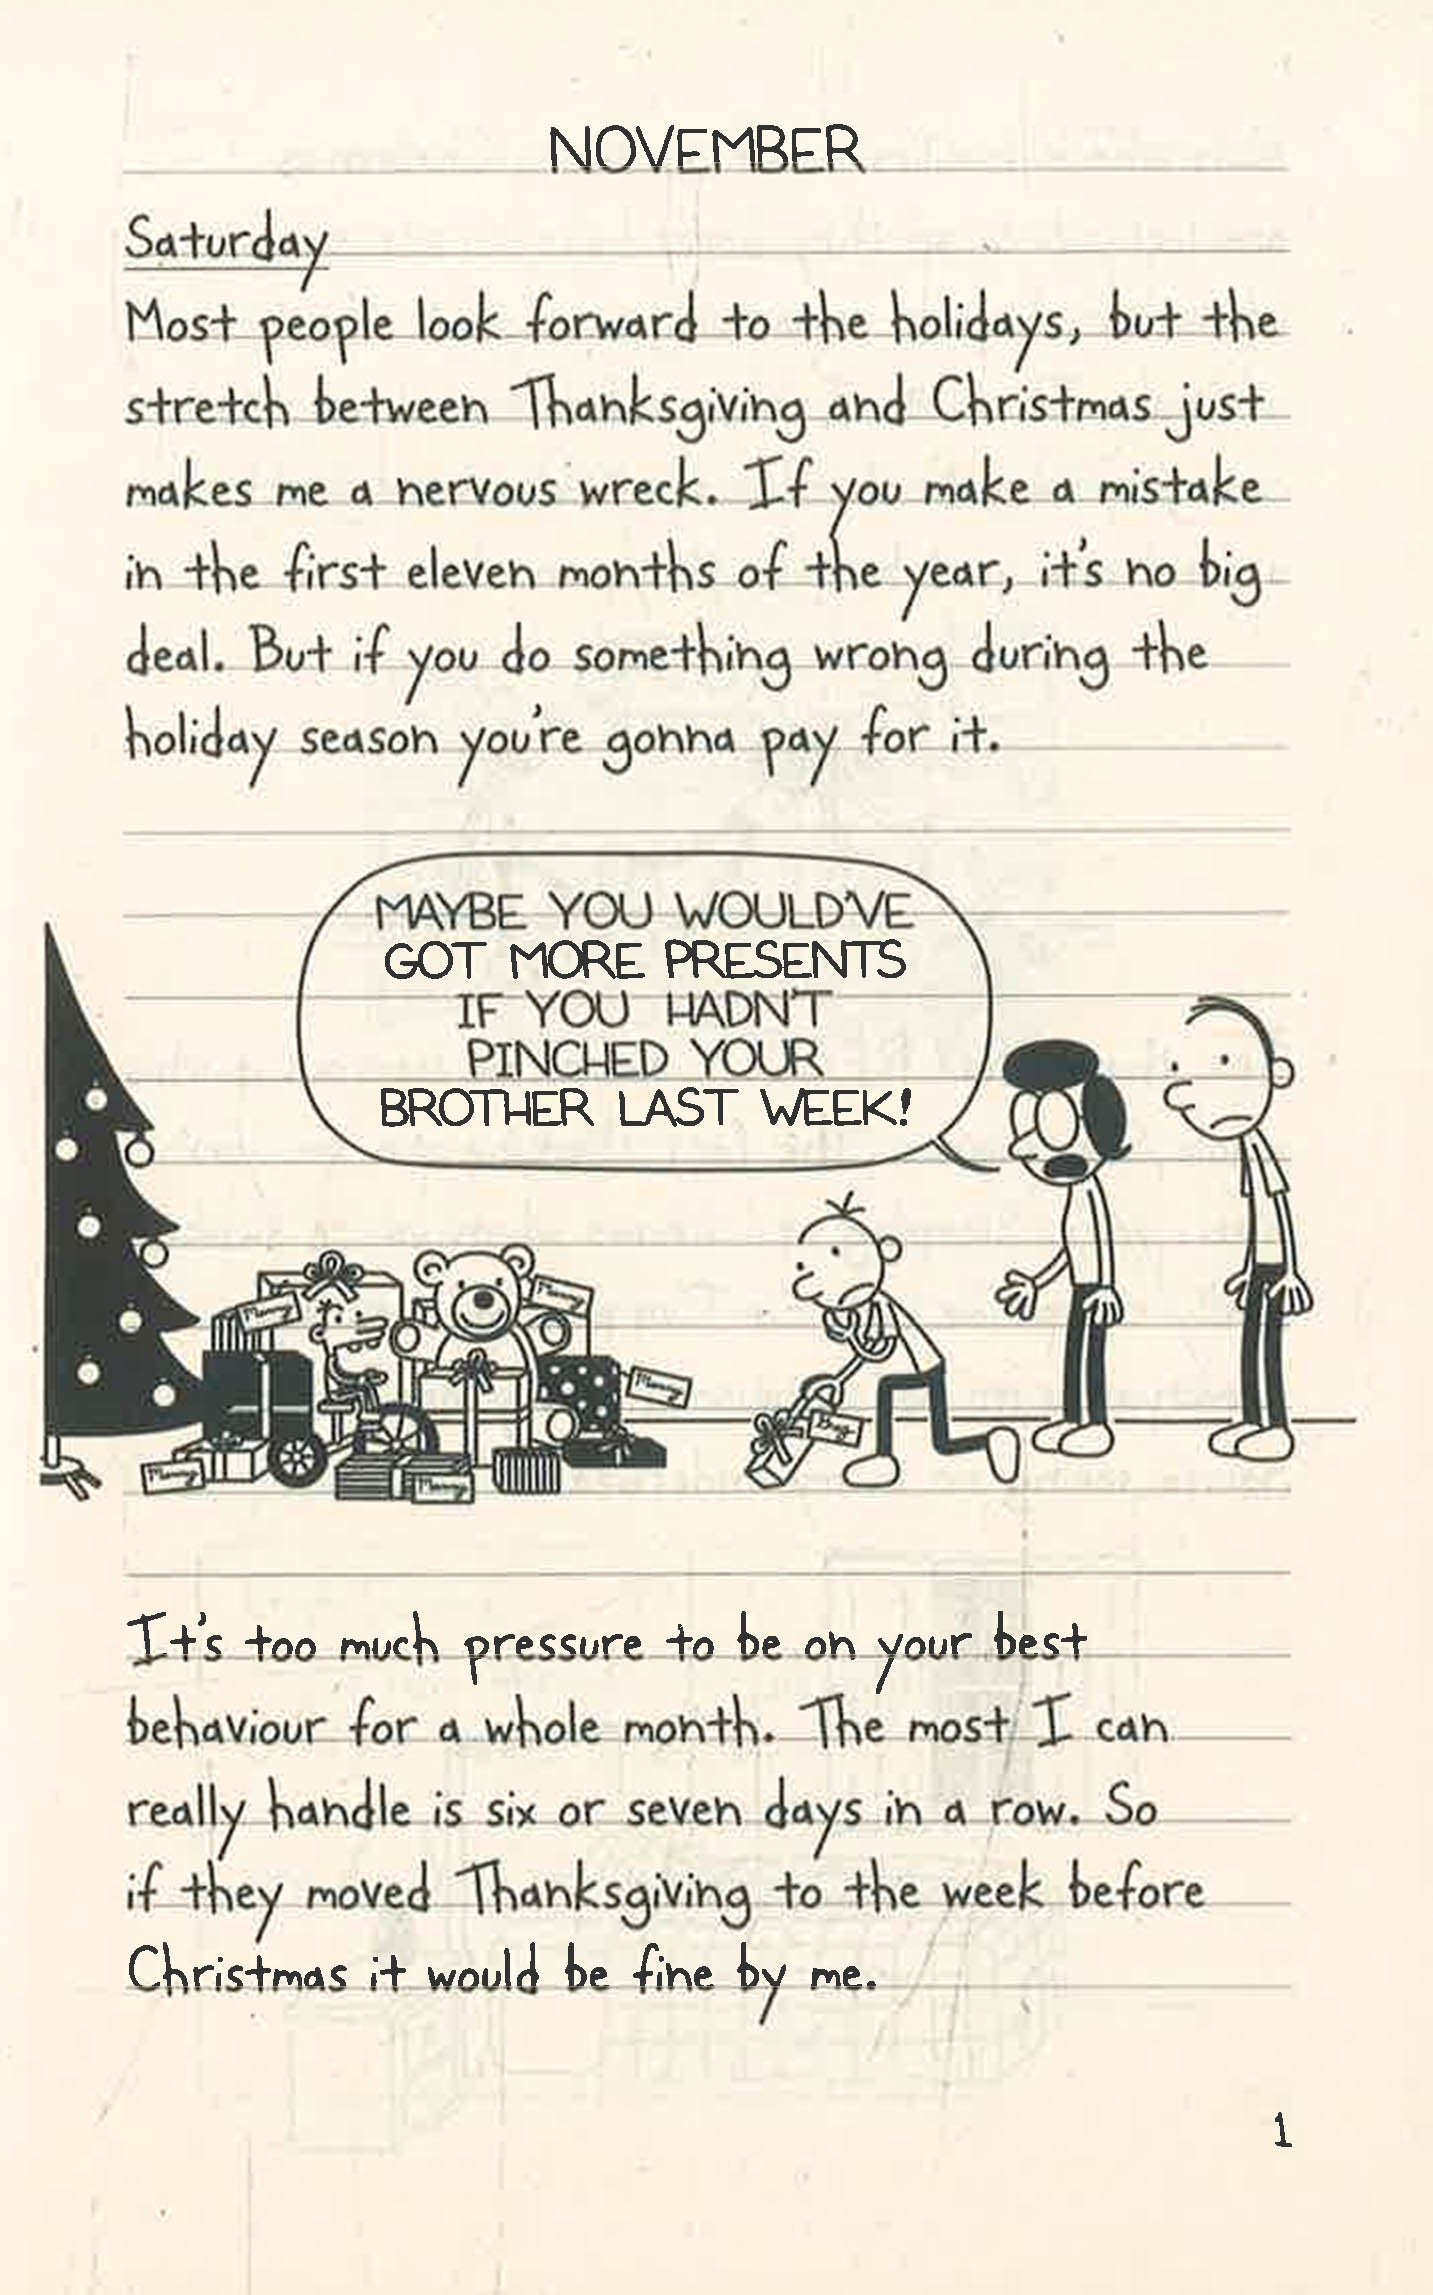 NOVEMBER
Saturday
Most people look forward to the holidays, but the
stretch between Thanksgiving and Christmas just
makes me a nervous wreck. If you make a mistake
in the first eleven months of the year, it's no big
deal. But if you do something wrong during the
holiday season you're gonna pay for it.
MAYBE YOU WOULD'VE
GOT MORE PRESENTS
IF YOU HADN'T
PINCHED YOUR
BROTHER LAST WEEK!
Manny
Manny
Manny
Manny
Manny
Greg
It's too much pressure to be on your best
behaviour for a whole month. The most I can
really handle is six or seven days in a row. So
if they moved Thanksgiving to the week before
Christmas it would be fine by me.
1